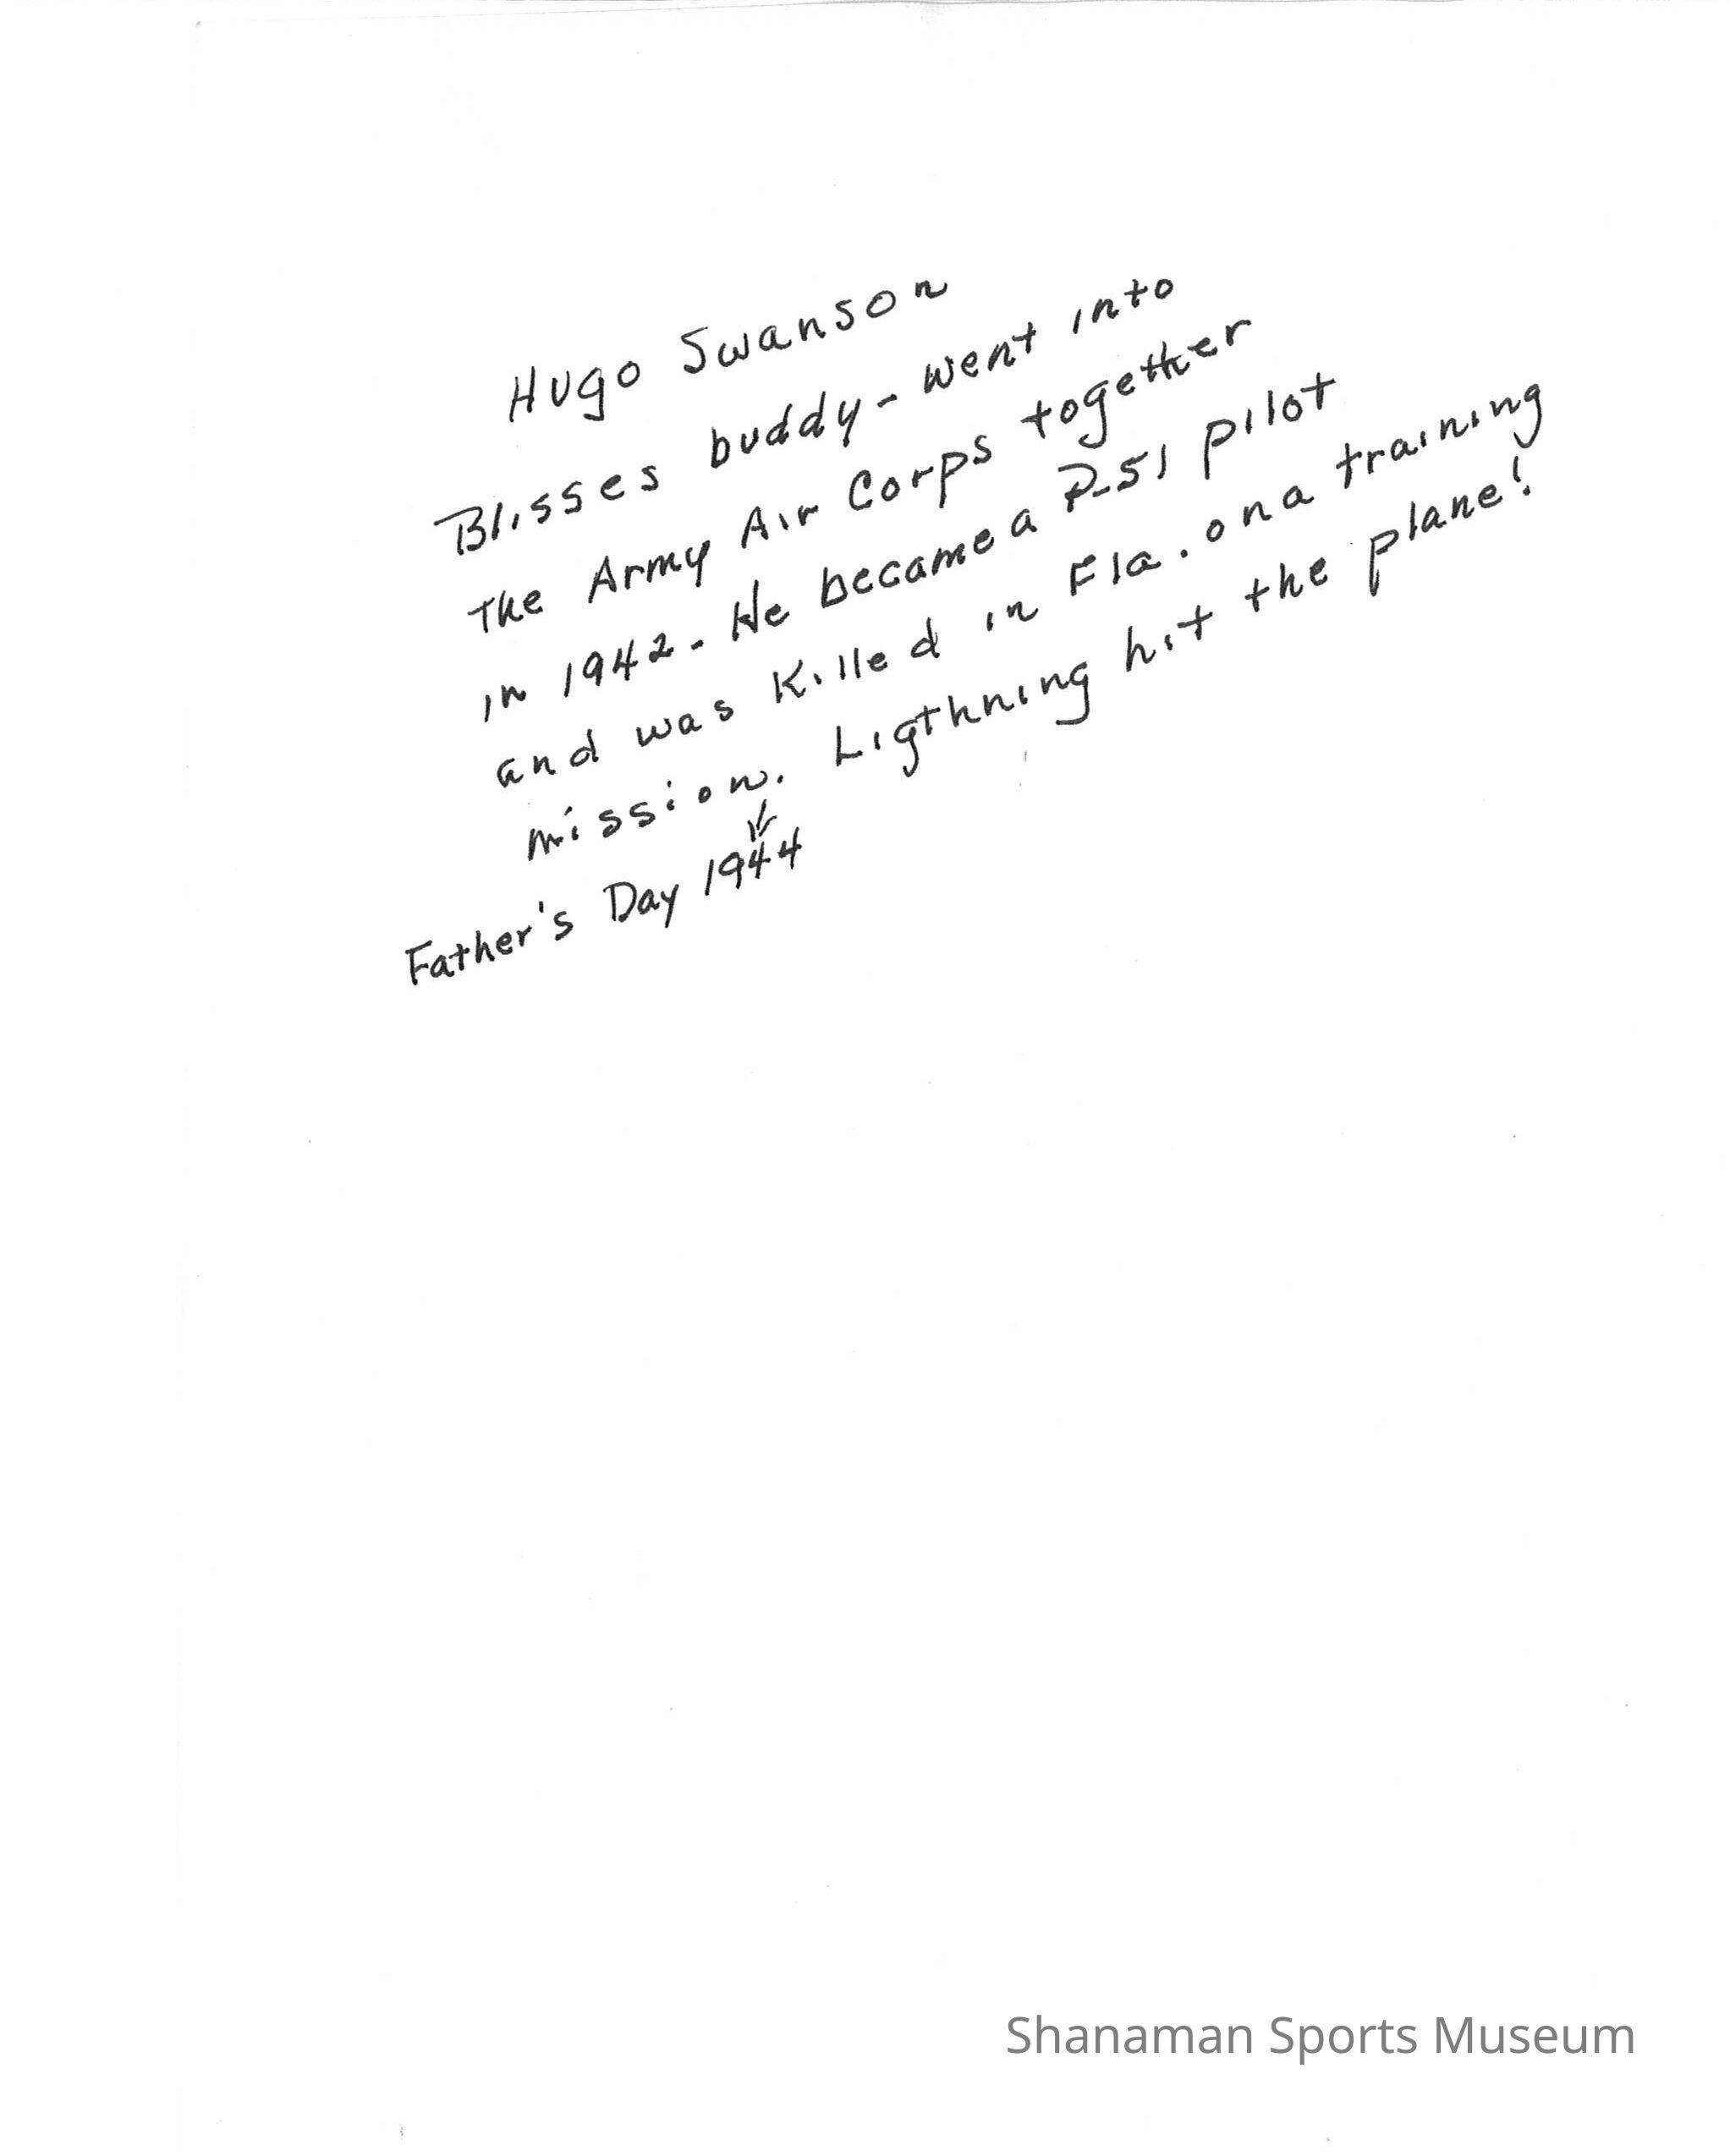 Hugo Swanson
Blisses buddy - went into
The Army Air Corps together
in 1942 - He became a P-51 pilot
and was killed in Fla. on a training
mission. Ligthning hit the plane!
Father's Day 1944
Shanaman Sports Museum